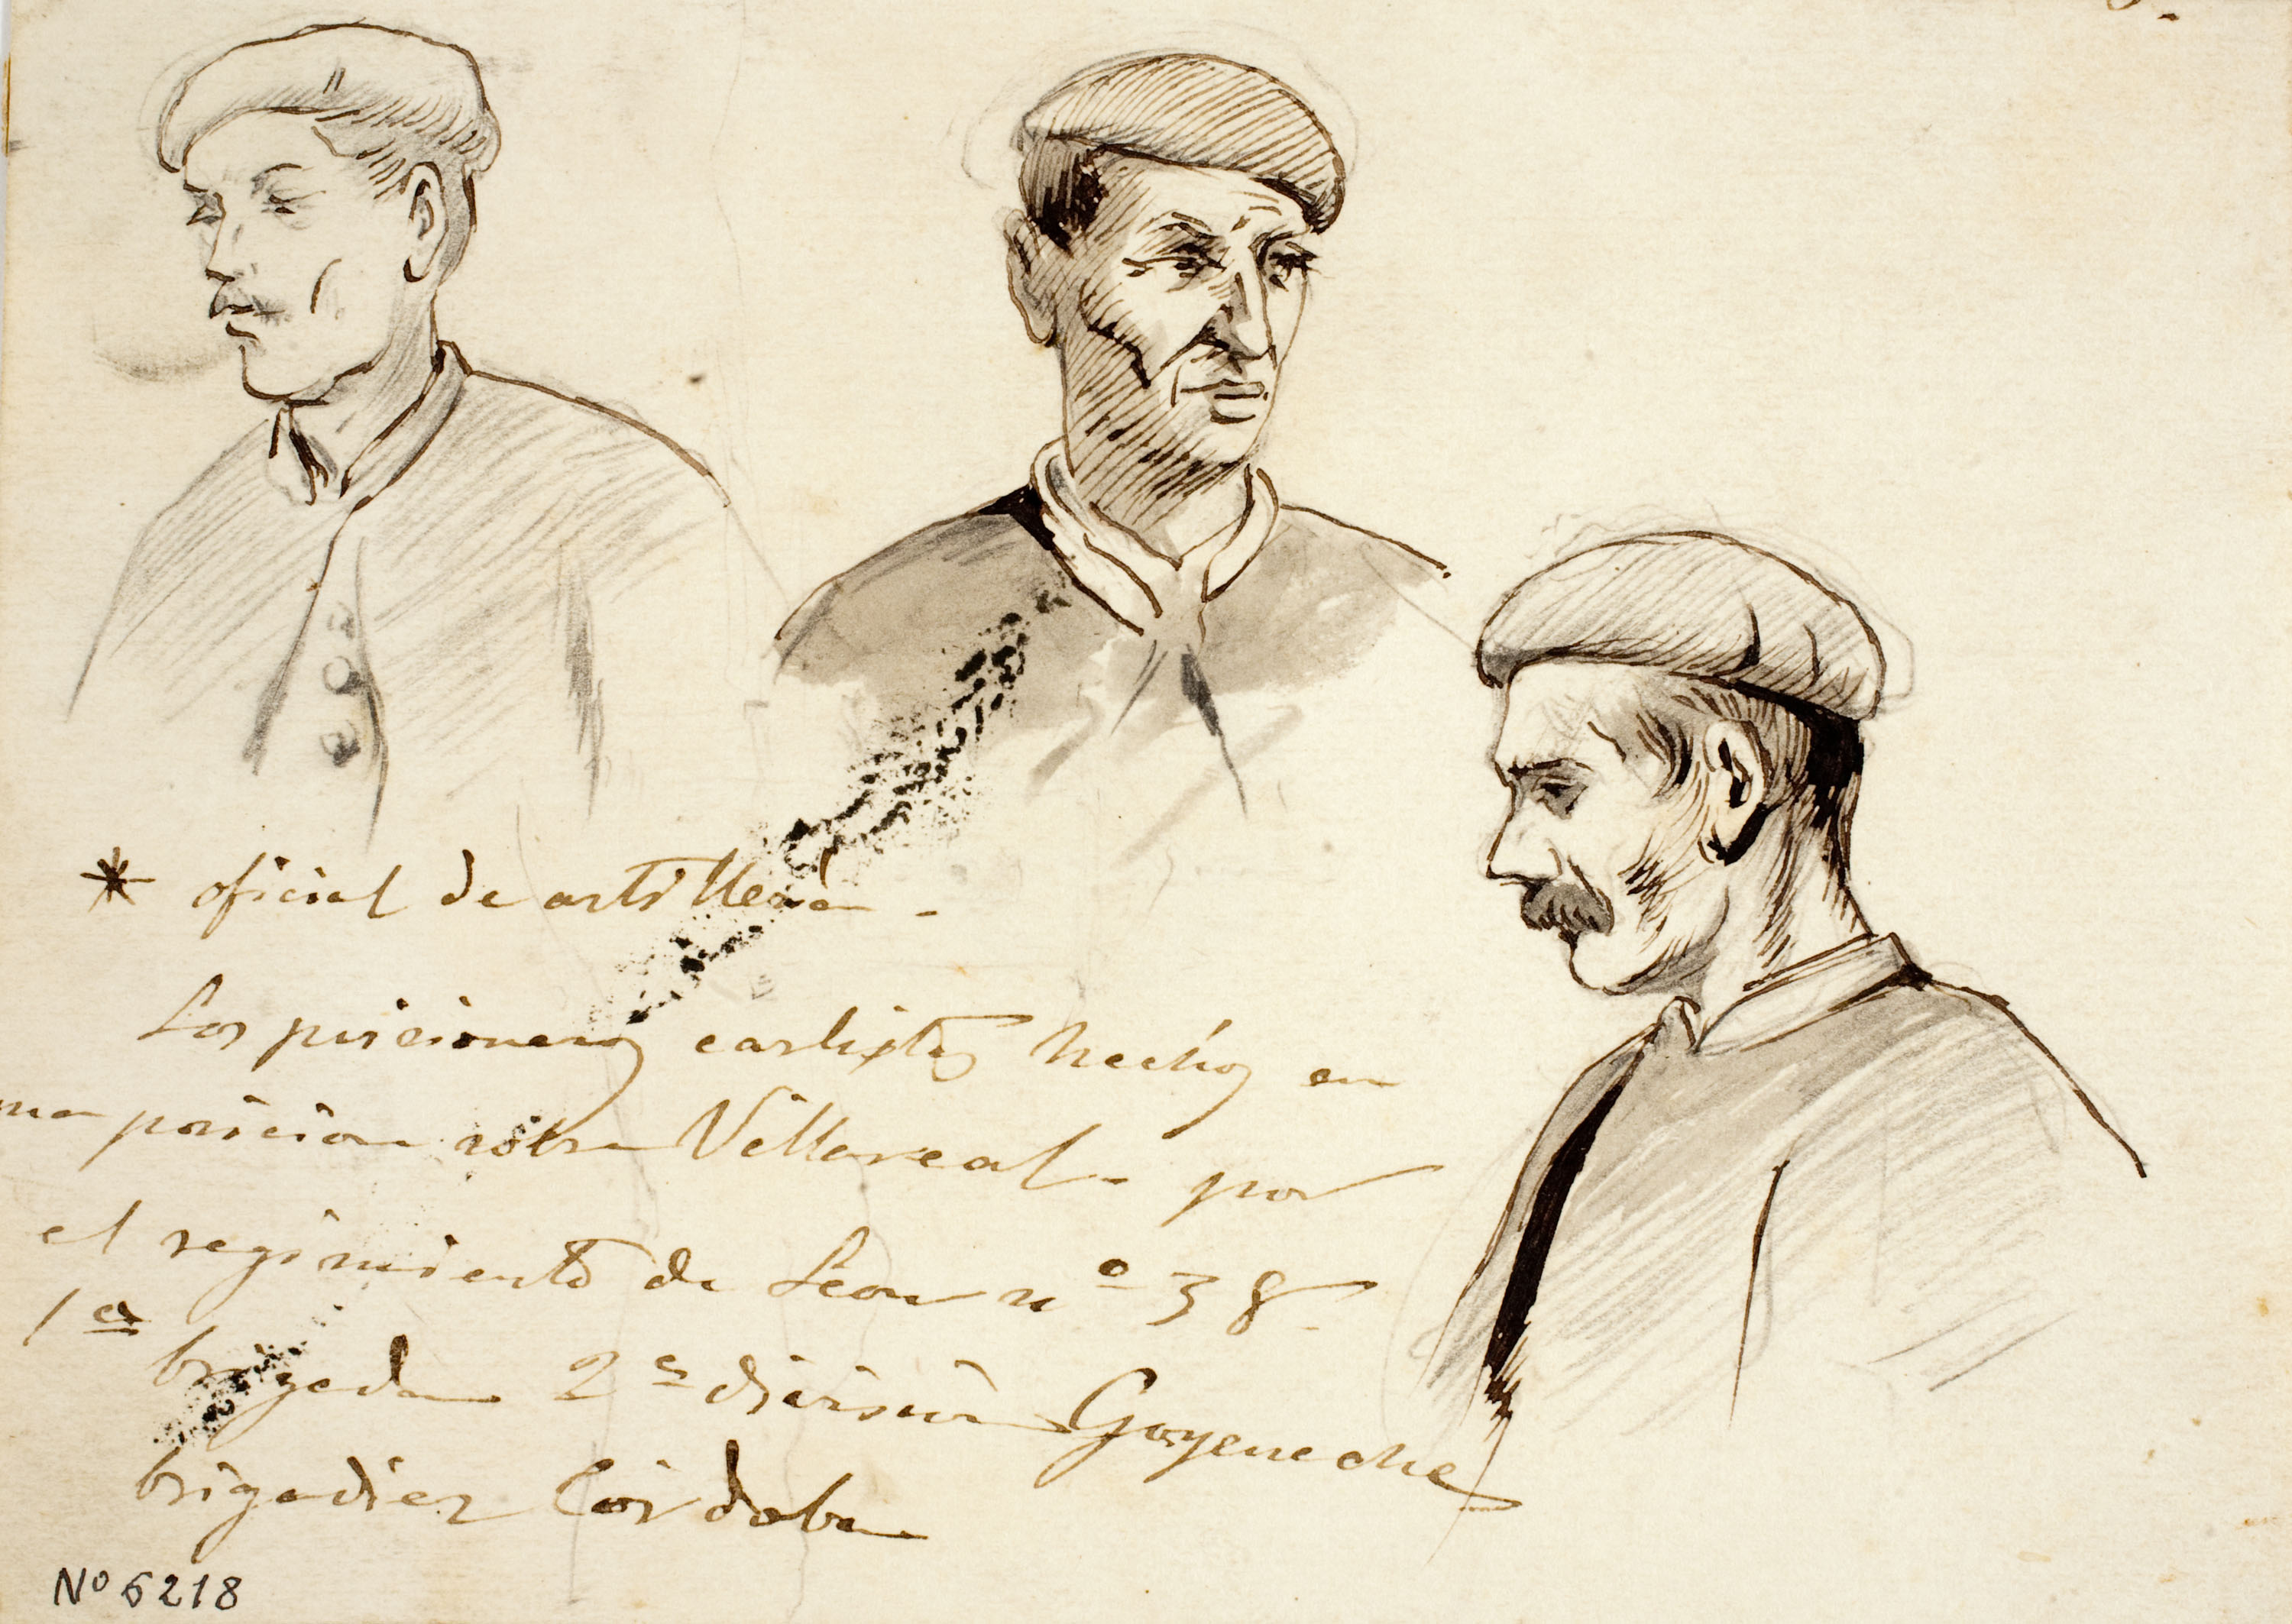 * oficial de artilleria.
Los prisioneros carlistas hechos en
una posicion sobre Villareal. por
el regimiento de Leon nº 38.
1ª
brigada 2ª division Goyeneche
brigadier Cordoba
Nº 6218